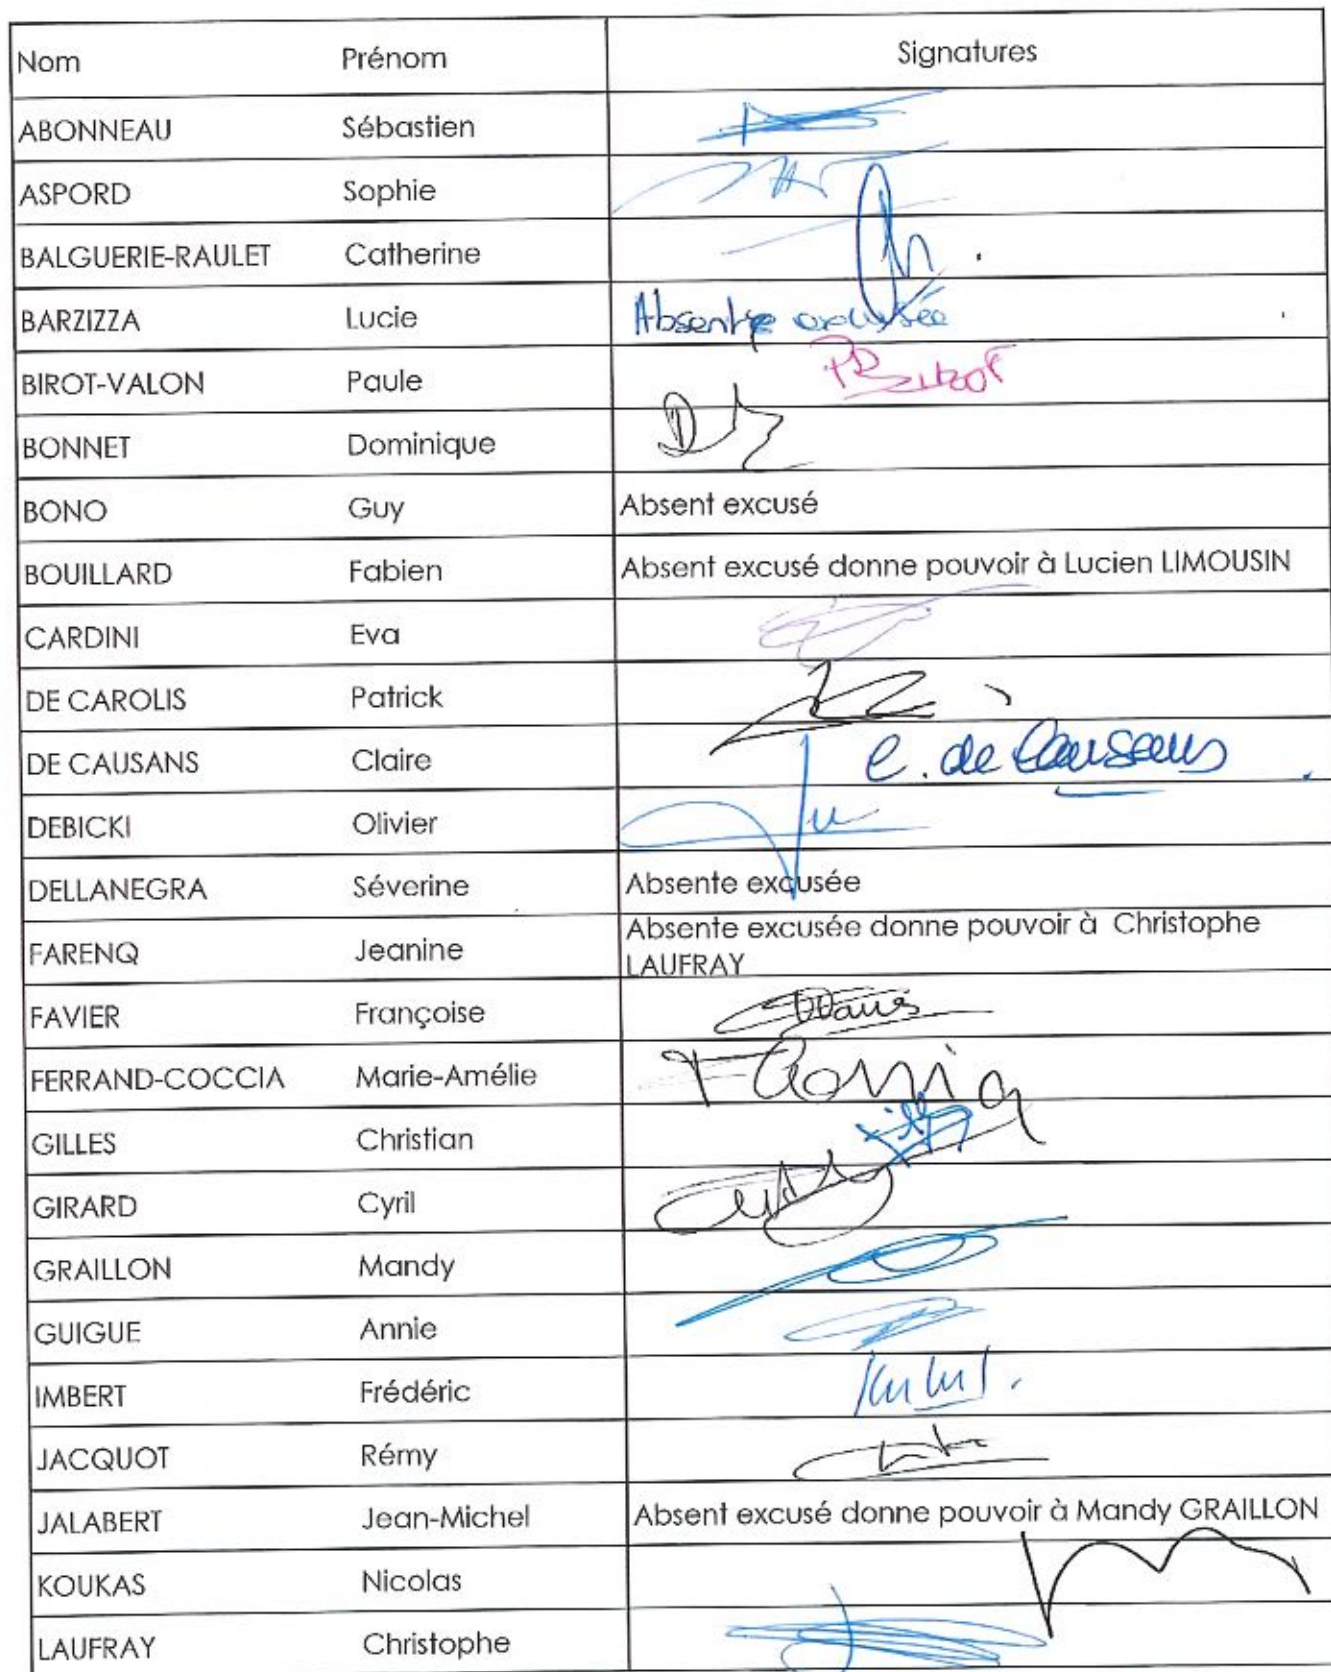 Nom Prénom Signatures
ABONNEAU Sébastien
ASPORD Sophie
BALGUERIE-RAULET Catherine
BARZIZZA Lucie Absente excusée
BIROT-VALON Paule
BONNET Dominique
BONO Guy Absent excusé
BOUILLARD Fabien Absent excusé donne pouvoir à Lucien LIMOUSIN
CARDINI Eva
DE CAROLIS Patrick
DE CAUSANS Claire C. de Causans
DEBICKI Olivier
DELLANEGRA Séverine Absente excusée
FARENQ Jeanine Absente excusée donne pouvoir à Christophe
LAUFRAY
FAVIER Françoise
FERRAND-COCCIA Marie-Amélie
GILLES Christian
GIRARD Cyril
GRAILLON Mandy
GUIGUE Annie
IMBERT Frédéric
JACQUOT Rémy
JALABERT Jean-Michel Absent excusé donne pouvoir à Mandy GRAILLON
KOUKAS Nicolas
LAUFRAY Christophe